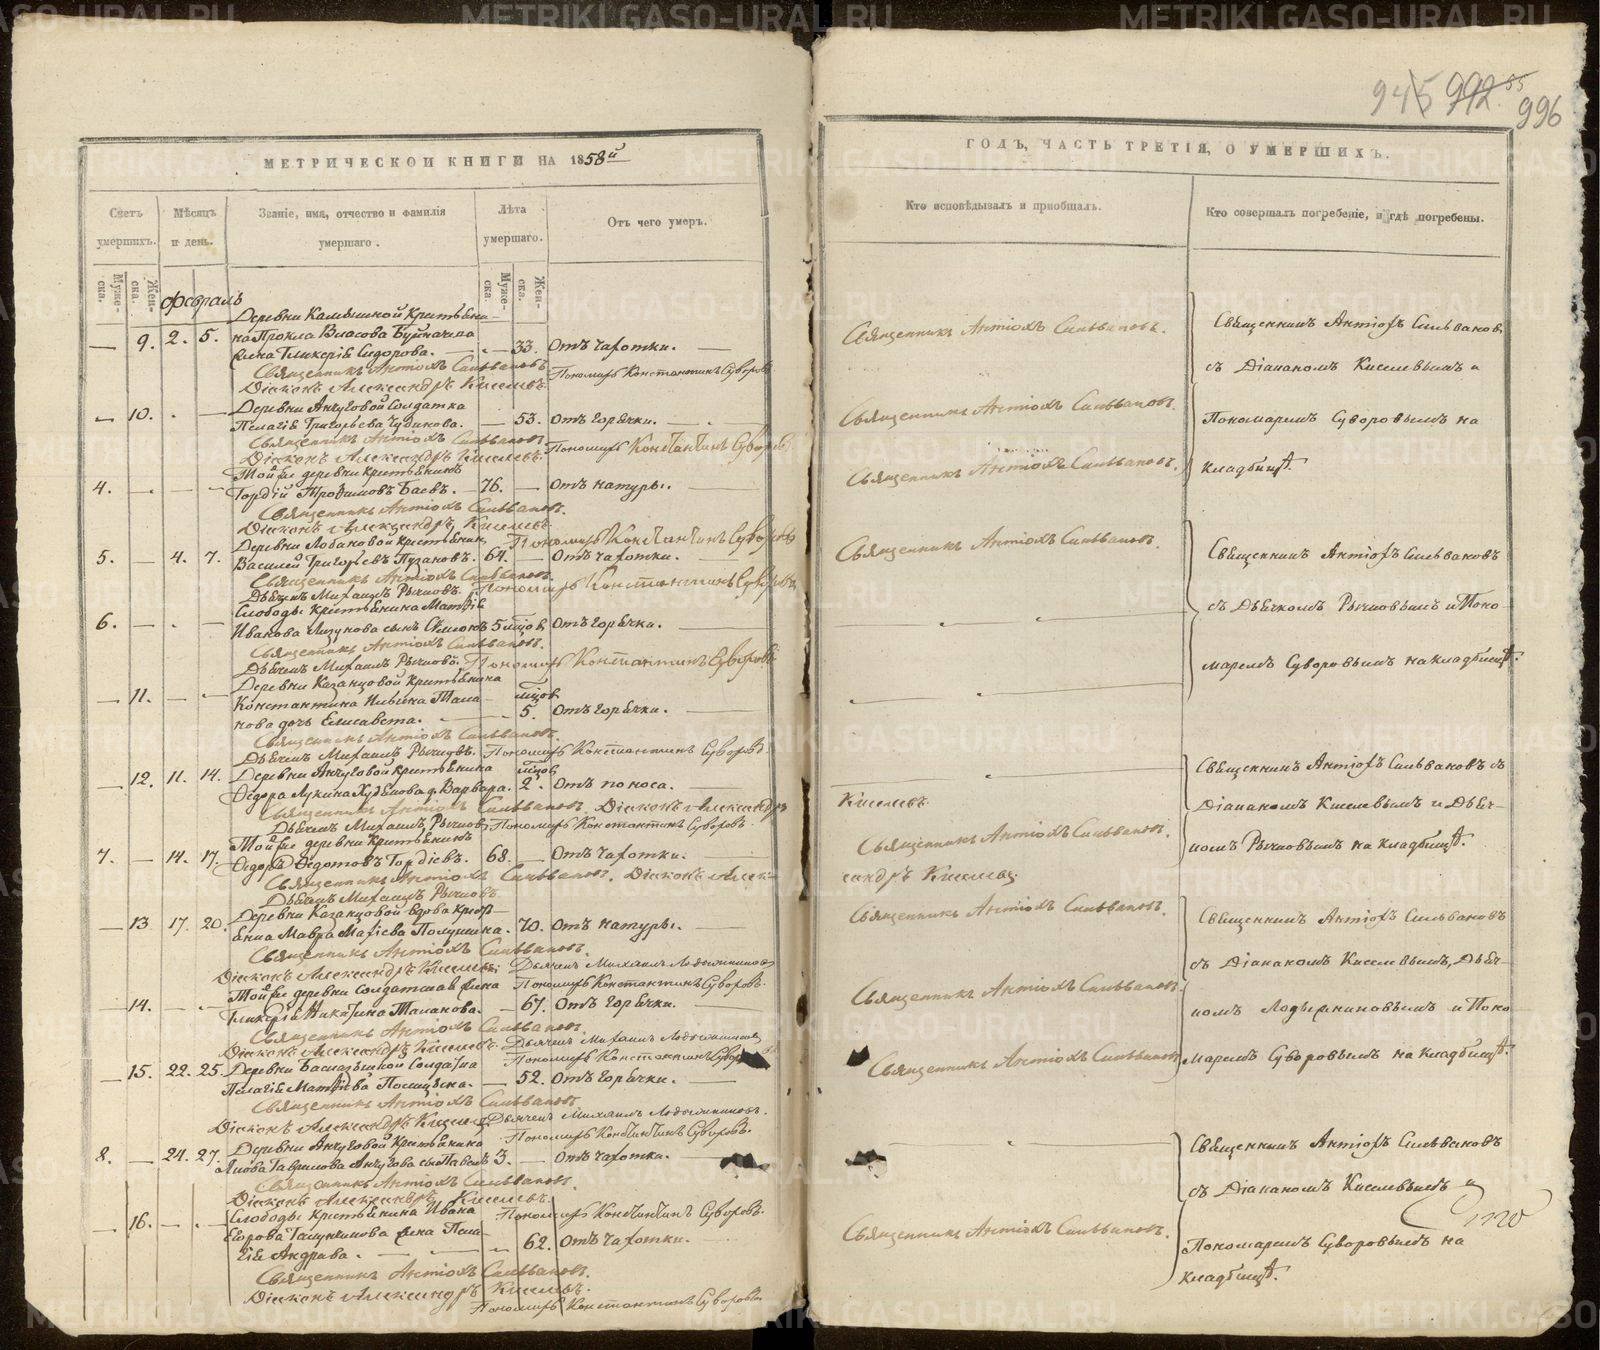 945 992 55 996
МЕТРИЧЕСКОЙ КНИГИ НА 1858й
Счетъ умершихъ.
Мѣсяцъ и день.
Званіе, имя, отчество и фамилія умершаго.
Лѣта умершаго.
Отъ чего умеръ.
Мужеска.
Женска.
Мужеска.
Женска.
февраль
Деревни Камышной Крестьяни-
9. 2. 5. на Прокла Власова
жена Гликерія Сидорова. 33. Отъ чахотки.
Священникъ Антіохъ Сильвановъ.
Діаконъ Александръ Киселевъ. Пономарь Константинъ Суворовъ
Деревни Анчуговой Солдатка
10. Пелагія Григорьева Чудинова. 53. Отъ горячки.
Священникъ Антіохъ Сильвановъ.
Діаконъ Александръ Киселевъ. Пономарь Константинъ Суворовъ
Той же деревни крестьянинъ
4. Гордій Трофимовъ Баевъ. 76. Отъ натуры.
Священникъ Антіохъ Сильвановъ.
Діаконъ Александръ Киселевъ.
Пономарь Константинъ Суворовъ
Деревни Лобановой крестьянинъ
5. 4. 7. Василей Григорьевъ Пузановъ. 64. Отъ чахотки.
Священникъ Антіохъ Сильвановъ.
Дьячекъ Михаилъ Рычковъ. Пономарь Константинъ Суворовъ
Слободы Крестьянина Матфія
6. Иванова сынъ 5 мѣцов Отъ горячки.
Священникъ Антіохъ Сильвановъ.
Дьячекъ Михаилъ Рычковъ. Пономарь Константинъ Суворовъ
Деревни Казанцовой Крестьянина
11. Константина Ильина Тала- мѣцов
нова дочь Елисавета. 5. Отъ горячки.
Священникъ Антіохъ Сильвановъ.
Дьячекъ Михаилъ Рычковъ. Пономарь Константинъ Суворовъ
Деревни Анчуговой крестьянина мѣцов
12. 11. 14. Ѳедора Лукина д. Варвара. 2. Отъ поноса.
Священникъ Антіохъ Сильвановъ. Діаконъ Александръ
Дьячекъ Михаилъ Рычковъ Пономарь Константинъ Суворовъ
Той же деревни Крестьянинъ
7. 14. 17. Ѳедоръ Ѳедотовъ Гордіевъ. 68. Отъ чахотки.
Священникъ Антіохъ Сильвановъ. Діаконъ Алек-
Дьячекъ Михаилъ Рычковъ
Деревни Казанцовой вдова крест-
13 17. 20. янка Мавра 70. Отъ натуры.
Священникъ Антіохъ Сильвановъ.
Діаконъ Александръ Киселевъ. Дьячекъ Михаилъ Лодыжниковъ
Той же деревни Солдатская жена Пономарь Константинъ Суворовъ.
14. Гликерія Никитина Таланова. 67. Отъ горячки.
Священникъ Антіохъ Сильвановъ.
Діаконъ Александръ Киселевъ. Дьячекъ Михаилъ Лодыжниковъ
Пономарь Константинъ
15. 22. 25. Деревни Солдатка
Пелагія Матфіева 52. Отъ горячки.
Священникъ Антіохъ Сильвановъ
Діаконъ Александръ Киселевъ Дьячекъ Михаилъ Лодыжниковъ.
Пономарь Константинъ Суворовъ.
Деревни Анчуговой Крестьянина
8. 24. 27. Якова Гаврилова Анчугова сынъ Павелъ 3. Отъ чахотки.
Священникъ Антіохъ Сильвановъ.
Діаконъ Александръ Киселевъ.
Пономарь Константинъ Суворовъ.
Слободы Крестьянина Ивана
16. Егорова жена Пела-
гія Андрева. 62. Отъ чахотки.
Священникъ Антіохъ Сильвановъ.
Діаконъ Александръ Киселевъ.
Пономарь Константинъ Суворовъ
ГОДЪ, ЧАСТЬ ТРЕТІЯ, О УМЕРШИХЪ.
Кто исповѣдывалъ и пріобщалъ.
Кто совершалъ погребеніе, и гдѣ погребены.
Священникъ Антіохъ Сильвановъ.
Священникъ Антіохъ Сильвановъ.
Священникъ Антіохъ Сильвановъ.
Священникъ Антіохъ Сильвановъ.
Киселевъ.
Священникъ Антіохъ Сильвановъ.
сандръ Киселевъ
Священникъ Антіохъ Сильвановъ.
Священникъ Антіохъ Сильвановъ.
Священникъ Антіохъ Сильвановъ
Священникъ Антіохъ Сильвановъ.
Священникъ Антіохъ Сильванов
съ Діакономъ Киселевымъ и
Пономаремъ Суворовымъ на
кладбищѣ.
Священникъ Антіохъ Сильвановъ
съ Дьячкомъ Рычковымъ и Поно-
маремъ Суворовымъ на кладбищѣ.
Священникъ Антіохъ Сильвановъ съ
Діакономъ Киселевымъ и Дьяч-
комъ Рычковымъ на кладбищѣ.
Священникъ Антіохъ Сильвановъ
съ Діакономъ Киселевымъ, Дьяч-
комъ Лодыжниковымъ и Поно-
маремъ Суворовымъ на кладбищѣ.
Священникъ Антіохъ Сильвановъ
съ Діакономъ Киселевымъ и
Пономаремъ Суворовымъ на
кладбищѣ.
METRIKI.GASO-URAL.RU